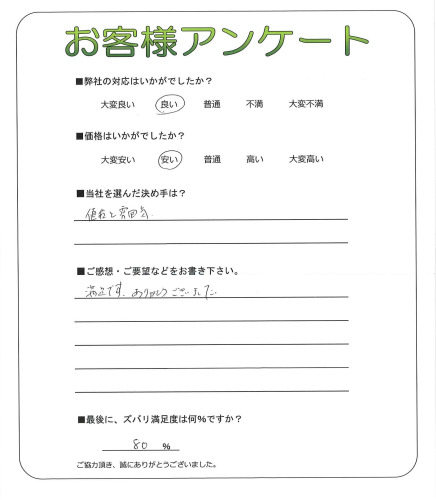 お客様アンケート
■弊社の対応はいかがでしたか？
大変良い 良い 普通 不満 大変不満
■価格はいかがでしたか？
大変安い 安い 普通 高い 大変高い
■当社を選んだ決め手は？
値段と雰囲気
■ご感想・ご要望などをお書き下さい。
満足です、ありがとうございました。
■最後に、ズバリ満足度は何%ですか？
80 %
ご協力頂き、誠にありがとうございました。